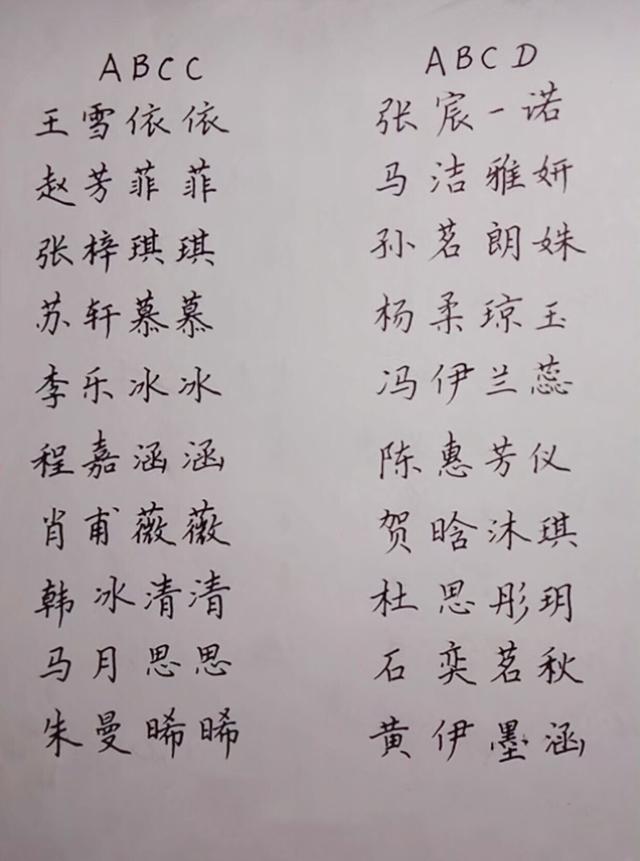 ABCC
王雪依依
赵芳菲菲
张梓琪琪
苏轩慕慕
李乐冰冰
程嘉涵涵
肖甫薇薇
韩冰清清
马月思思
朱曼晞晞
ABCD
张宸一诺
马洁雅妍
孙茗朗姝
杨柔琼玉
冯伊兰蕊
陈惠芳仪
贺晗沐琪
杜思彤玥
石奕茗秋
黄伊墨涵